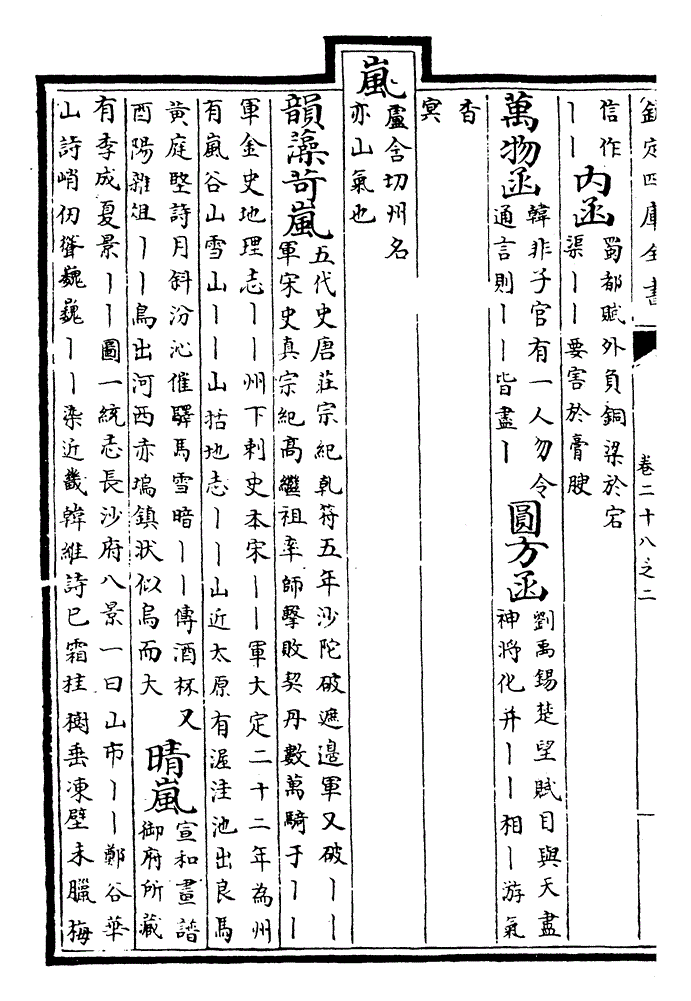 欽定四庫全書 卷二十八之二 一
信作
丨丨
内函
蜀都賦外負銅梁於宕
渠丨丨要害於膏腴
萬物函
韓非子官有一人勿令
通言則丨丨皆盡丨
圓方函
劉禹錫楚望賦目與天盡
神將化并丨丨相丨游氣
杳
冥
嵐
盧含切州名
亦山氣也
韻藻苛嵐
五代史唐莊宗紀乾符五年沙陀破遮邊軍又破丨丨
軍宋史真宗紀高繼祖率師擊敗契丹數萬騎于丨丨
軍金史地理志丨丨州下刺史本宋丨丨軍大定二十二年為州
有嵐谷山雪山丨丨山括地志丨丨山近太原有渥洼池出良馬
黃庭堅詩月斜汾沁催驛馬雪暗丨丨傳酒杯又
酉陽雜俎丨丨鳥出河西赤塢鎮狀似烏而大
晴嵐
宣和畫譜
御府所藏
有李成夏景丨丨圖一統志長沙府八景一曰山市丨丨鄭谷華
山詩峭仞聳巍巍丨丨染近畿韓維詩已霜桂樹垂凍壁未臘梅